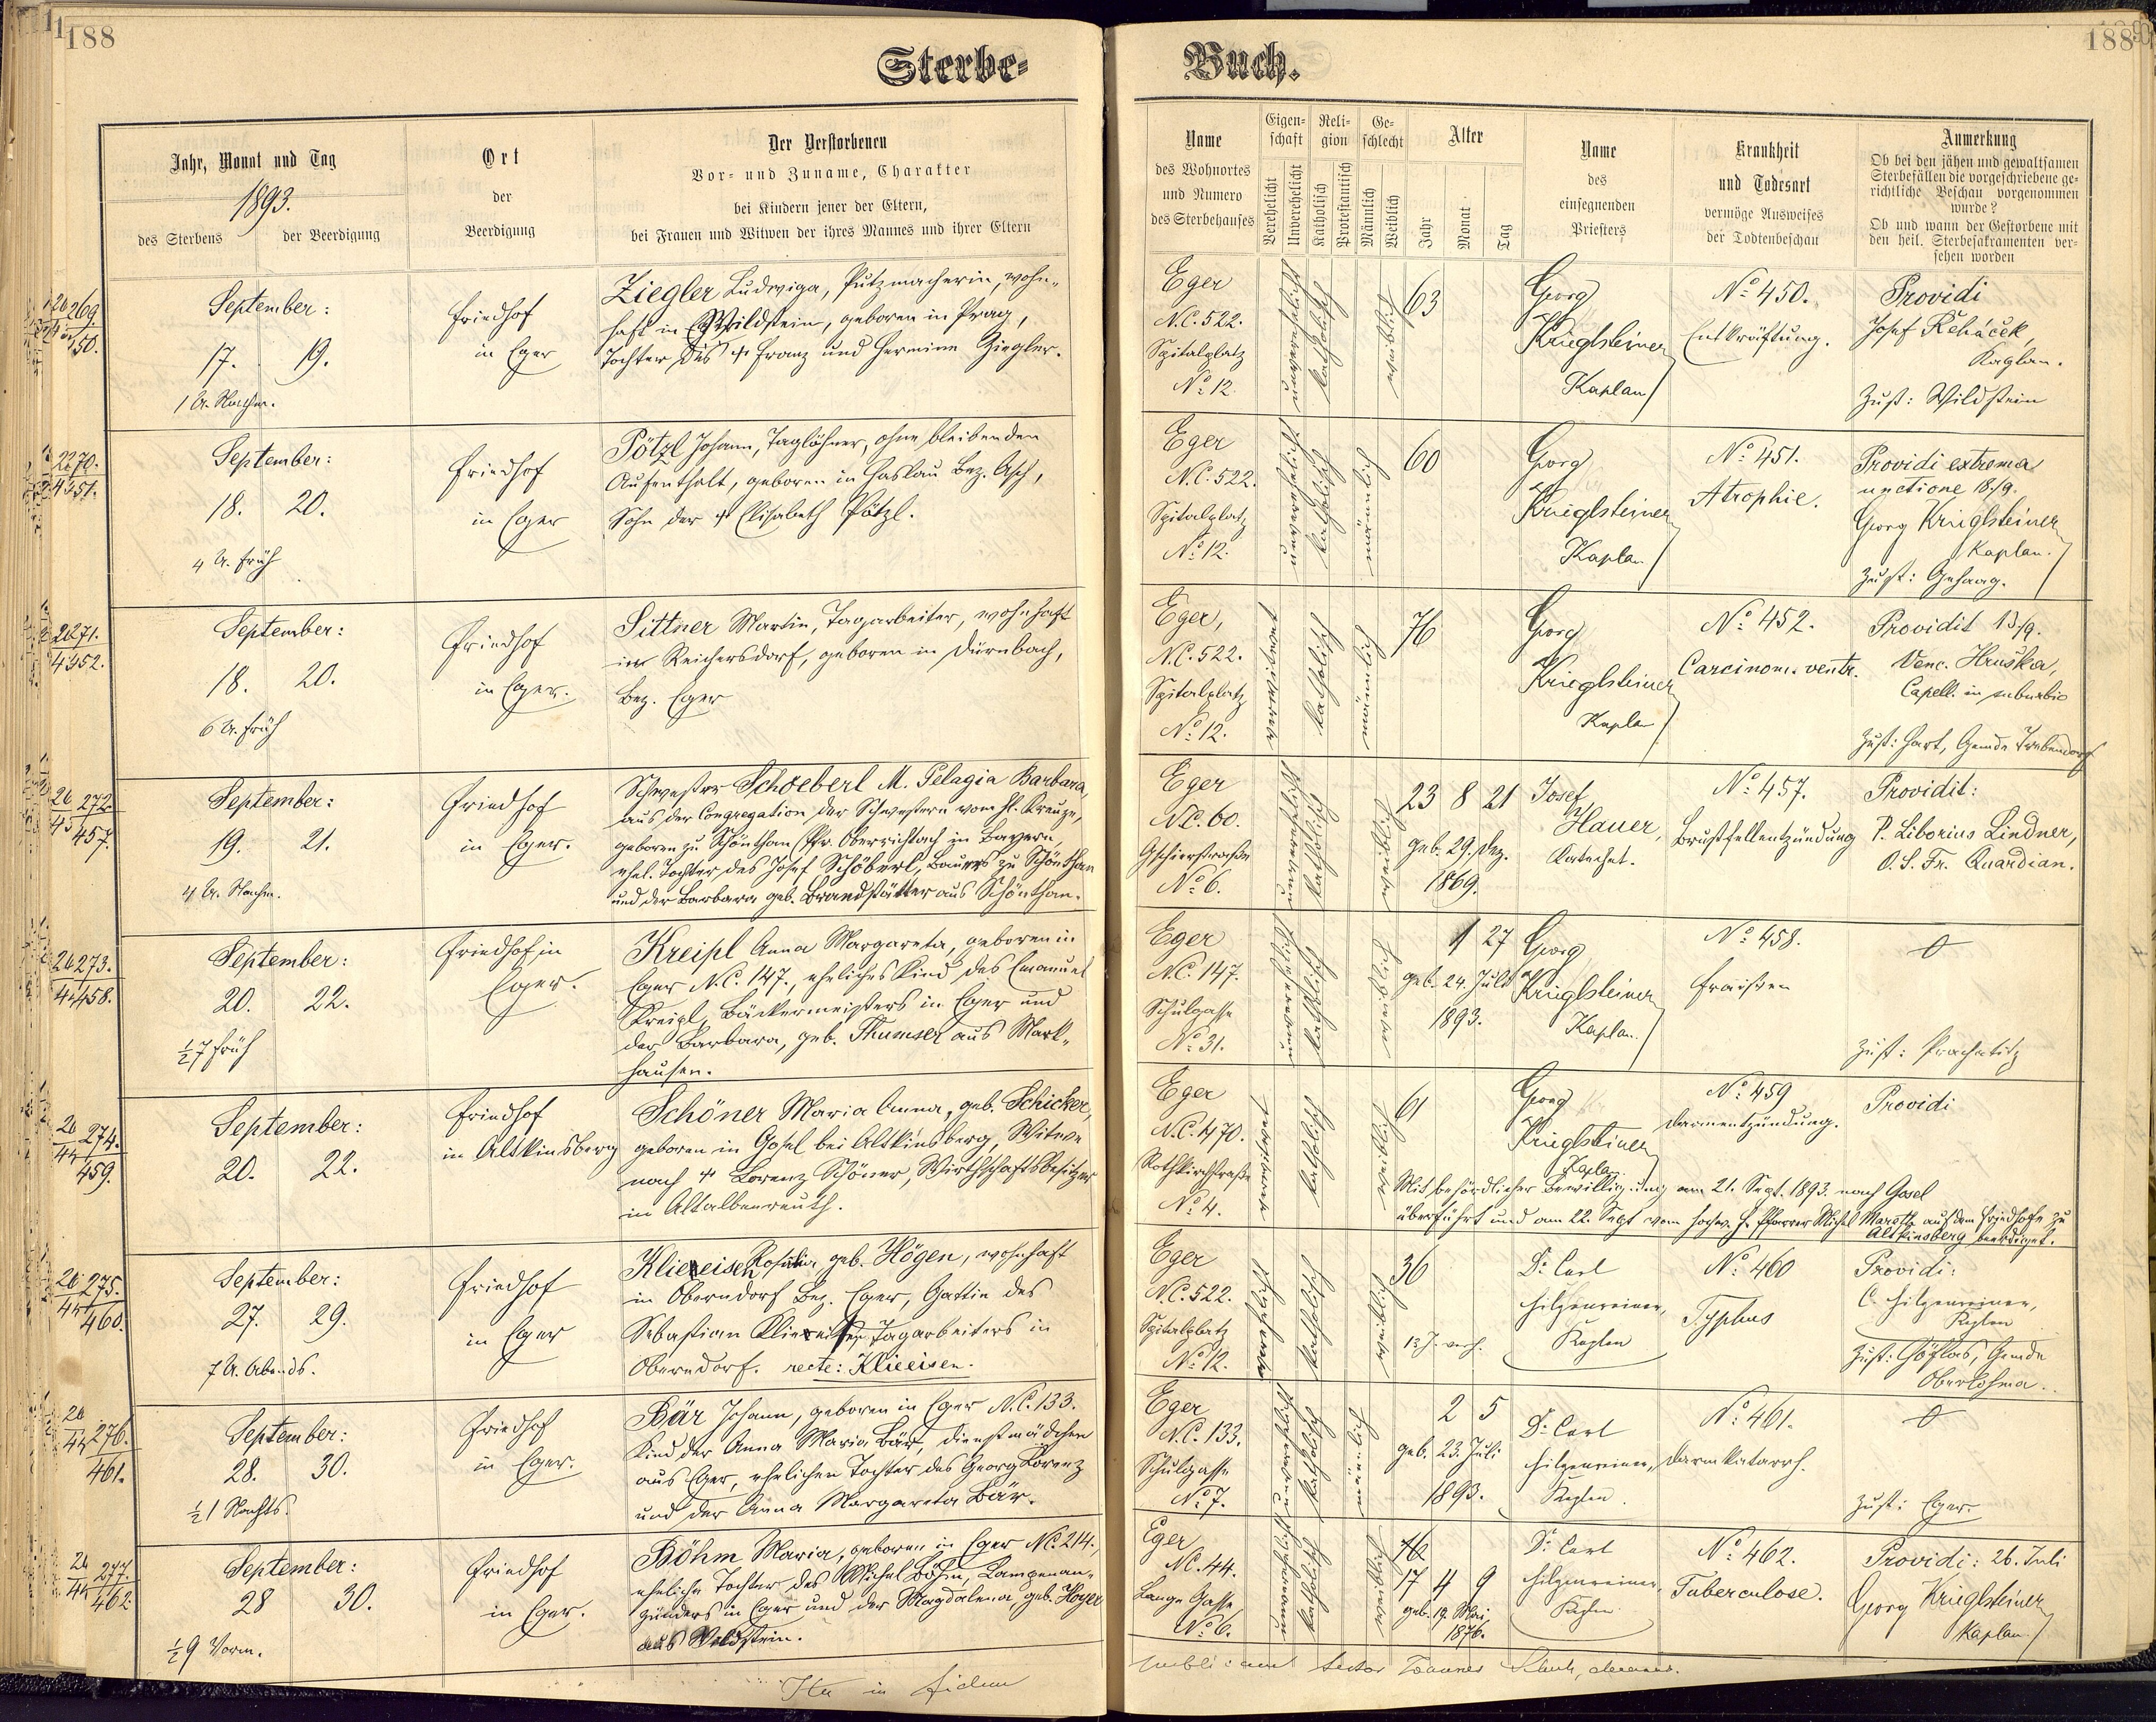 188
188
Sterbe-
Buch.
Jahr, Monat und Tag
1893.
des Sterbens
der Beerdigung
Ort
der
Beerdigung
Der Verstorbenen
Vor- und Zuname, Charakter
bei Kindern jener der Eltern,
bei Frauen und Witwen der ihres Mannes und ihrer Eltern
Name
des Wohnortes
und Numero
des Sterbehauses
Eigen-
schaft
Verehelicht
Unverehelicht
Reli-
gion
Katholisch
Protestantisch
Ge-
schlecht
Männlich
Weiblich
Alter
Jahr
Monat
Tag
Name
des
einsegnenden
Priesters
Krankheit
und Todesart
vermöge Ausweises
der Todtenbeschau
Anmerkung
Ob bei den jähen und gewaltsamen
Sterbefällen die vorgeschriebene ge-
richtliche Beschau vorgenommen
wurde?
Ob und wann der Gestorbene mit
den heil. Sterbesakramenten ver-
sehen worden
269.
450.
September:
17. 19.
1 U. Nachm.
Friedhof
in Eger
Ziegler Ludwiga, Putzmacherin, wohn-
haft in Wildstein, geboren in Prag,
Tochter des + Franz und Hermine Ziegler.
Eger
N.C. 522.
Spitalplatz
No 12.
unverehelicht
katholisch
weiblich
63
Georg
Krieglsteiner
Kaplan
No 450.
Entkräftung.
Providi
Josef Řeháček,
Kaplan.
Zust: Wildstein
270.
451.
September:
18. 20.
4 U. früh
Friedhof
in Eger
Pötzl Johann, Taglöhner, ohne bleibenden
Aufenthalt, geboren in Haslau Bez. Asch,
Sohn der + Elisabeth Pötzl.
Eger
N.C. 522.
Spitalplatz
No 12.
unverehelicht
katholisch
männlich
60
Georg
Krieglsteiner
Kaplan
No 451.
Atrophie.
Providi extrema
unctione 18/9.
Georg Krieglsteiner
Kaplan.
Zust: Gehaag.
271.
452.
September:
18. 20.
6 U. früh
Friedhof
in Eger.
Sittner Martin, Tagarbeiter, wohnhaft
in Reichersdorf, geboren in Dürnbach,
Bez. Eger
Eger,
N.C. 522.
Spitalplatz
No 12.
verwitwet
katholisch
männlich
76
Georg
Krieglsteiner
Kaplan
No 452.
Carcinom. ventr.
Providit 13/9.
Venc. Hruška,
Capell. in suburbio
Zust: Hart, Gemde Trebendorf
272
457.
September:
19. 21.
4 U. Nachm.
Friedhof
in Eger.
Schwester Schoeberl M. Pelagia Barbara,
aus der Congregation der Schwestern vom hl. Kreuze,
geboren zu Schönthan Pfr. Oberviechtach in Bayern,
ehel. Tochter des Josef Schöberl, Bauers zu Schönthan
und der Barbara geb. Brandstätter aus Schönthan.
Eger
N.C. 60.
No 6.
unverehelicht
katholisch
weiblich
23 8 21
geb. 29. Dez.
1869.
Josef
Hauer,
Katechet.
No 457.
Brustfellentzündung
Providit:
P. Liborius Lindner,
O.S. Fr. Quardian.
273.
458.
September:
20. 22.
½7 früh
Friedhof in
Eger.
Kreipl Anna Margareta, geboren in
Eger N.C. 147., eheliches Kind des Emanuel
Kreipl, Bäckermeisters in Eger und
der Barbara, geb. Thumser aus Mark-
hausen.
Eger
N.C. 147.
Schulgasse
No 31.
unverehelicht
katholisch
weiblich
1 27
geb. 24. Juli
1893.
Georg
Krieglsteiner
Kaplan.
No 458.
Fraisen
Zust: Prachatitz
274.
459.
September:
20. 22.
Friedhof
in Altkinsberg
Schöner Maria Anna, geb. Schicker,
geboren in Gosel bei Altkinsberg, Witwe
nach + Lorenz Schöner, Wirthschaftsbesitzer
in Altalbenreuth.
Eger
N.C. 470.
Rothkirchstraße
No 4.
verwitwet
katholisch
weiblich
61
Georg
Krieglsteiner
Kaplan.
No 459
Darmentzündung.
Providi
Mit behördlicher Bewilligung am 21. Sept. 1893. nach Gosel
überführt und am 22. Sept vom hochw. H. Pfarrer Michel Mareth auf dem Friedhofe zu
Altkinsberg beerdiget.
275.
460.
September:
27. 29.
7 U. Abends.
Friedhof
in Eger
Klieeisen Rosina geb. Högen, wohnhaft
in Oberndorf Bez. Eger, Gattin des
Sebastian Klieeisen, Tagarbeiters in
Oberndorf. recte: Klieeisen.
Eger
N.C. 522.
Spitalplatz
No 12.
verehelicht
katholisch
weiblich
36
13 J. verh.
Dr Carl
Hilgenreiner,
Kaplan
No 460
Typhus
Providi:
C. Hilgenreiner,
Kaplan
Zust: Höflas, Gemde
Oberlohma.
276.
461.
September:
28. 30.
½1 Nachts.
Friedhof
in Eger.
Bär Johann, geboren in Eger N.C. 133.
Kind der Anna Maria Bär, Dienstmädchen
aus Eger, ehelichen Tochter des Georg Lorenz
und der Anna Margareta Bär.
Eger
N.C. 133.
Schulgasse
No 7.
unverehelicht
katholisch
männlich
2 5
geb. 23. Juli
1893.
Dr Carl
Hilgenreiner,
Kaplan.
No 461.
Darmkatarrh.
Zust: Eger
277.
462
September:
28 30.
½9 Vorm.
Friedhof
in Eger.
Böhm Maria, geboren in Eger N.C. 214.,
eheliche Tochter des Michel Böhm, Lampenan-
zünders in Eger und der Magdalena, geb. Hoyer
aus Wildstein.
Eger
N.C. 44.
Lange Gasse
No 6.
unverehelicht
katholisch
weiblich
17 4 9
geb. 19. Mai,
1876.
Dr Carl
Hilgenreiner,
Kaplan
No 462.
Tuberculose.
Providi: 26. Juli
Georg Krieglsteiner
Kaplan.
Ita in fidem